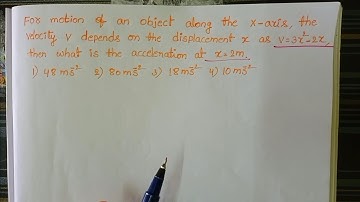 For motion of an object along the x-axis, the
velocity v depends on the displacement x as v=3x²-2x,
then what is the acceleration at x=2m.
1) 48 ms⁻² 2) 80 ms⁻² 3) 18 ms⁻² 4) 10 ms⁻²